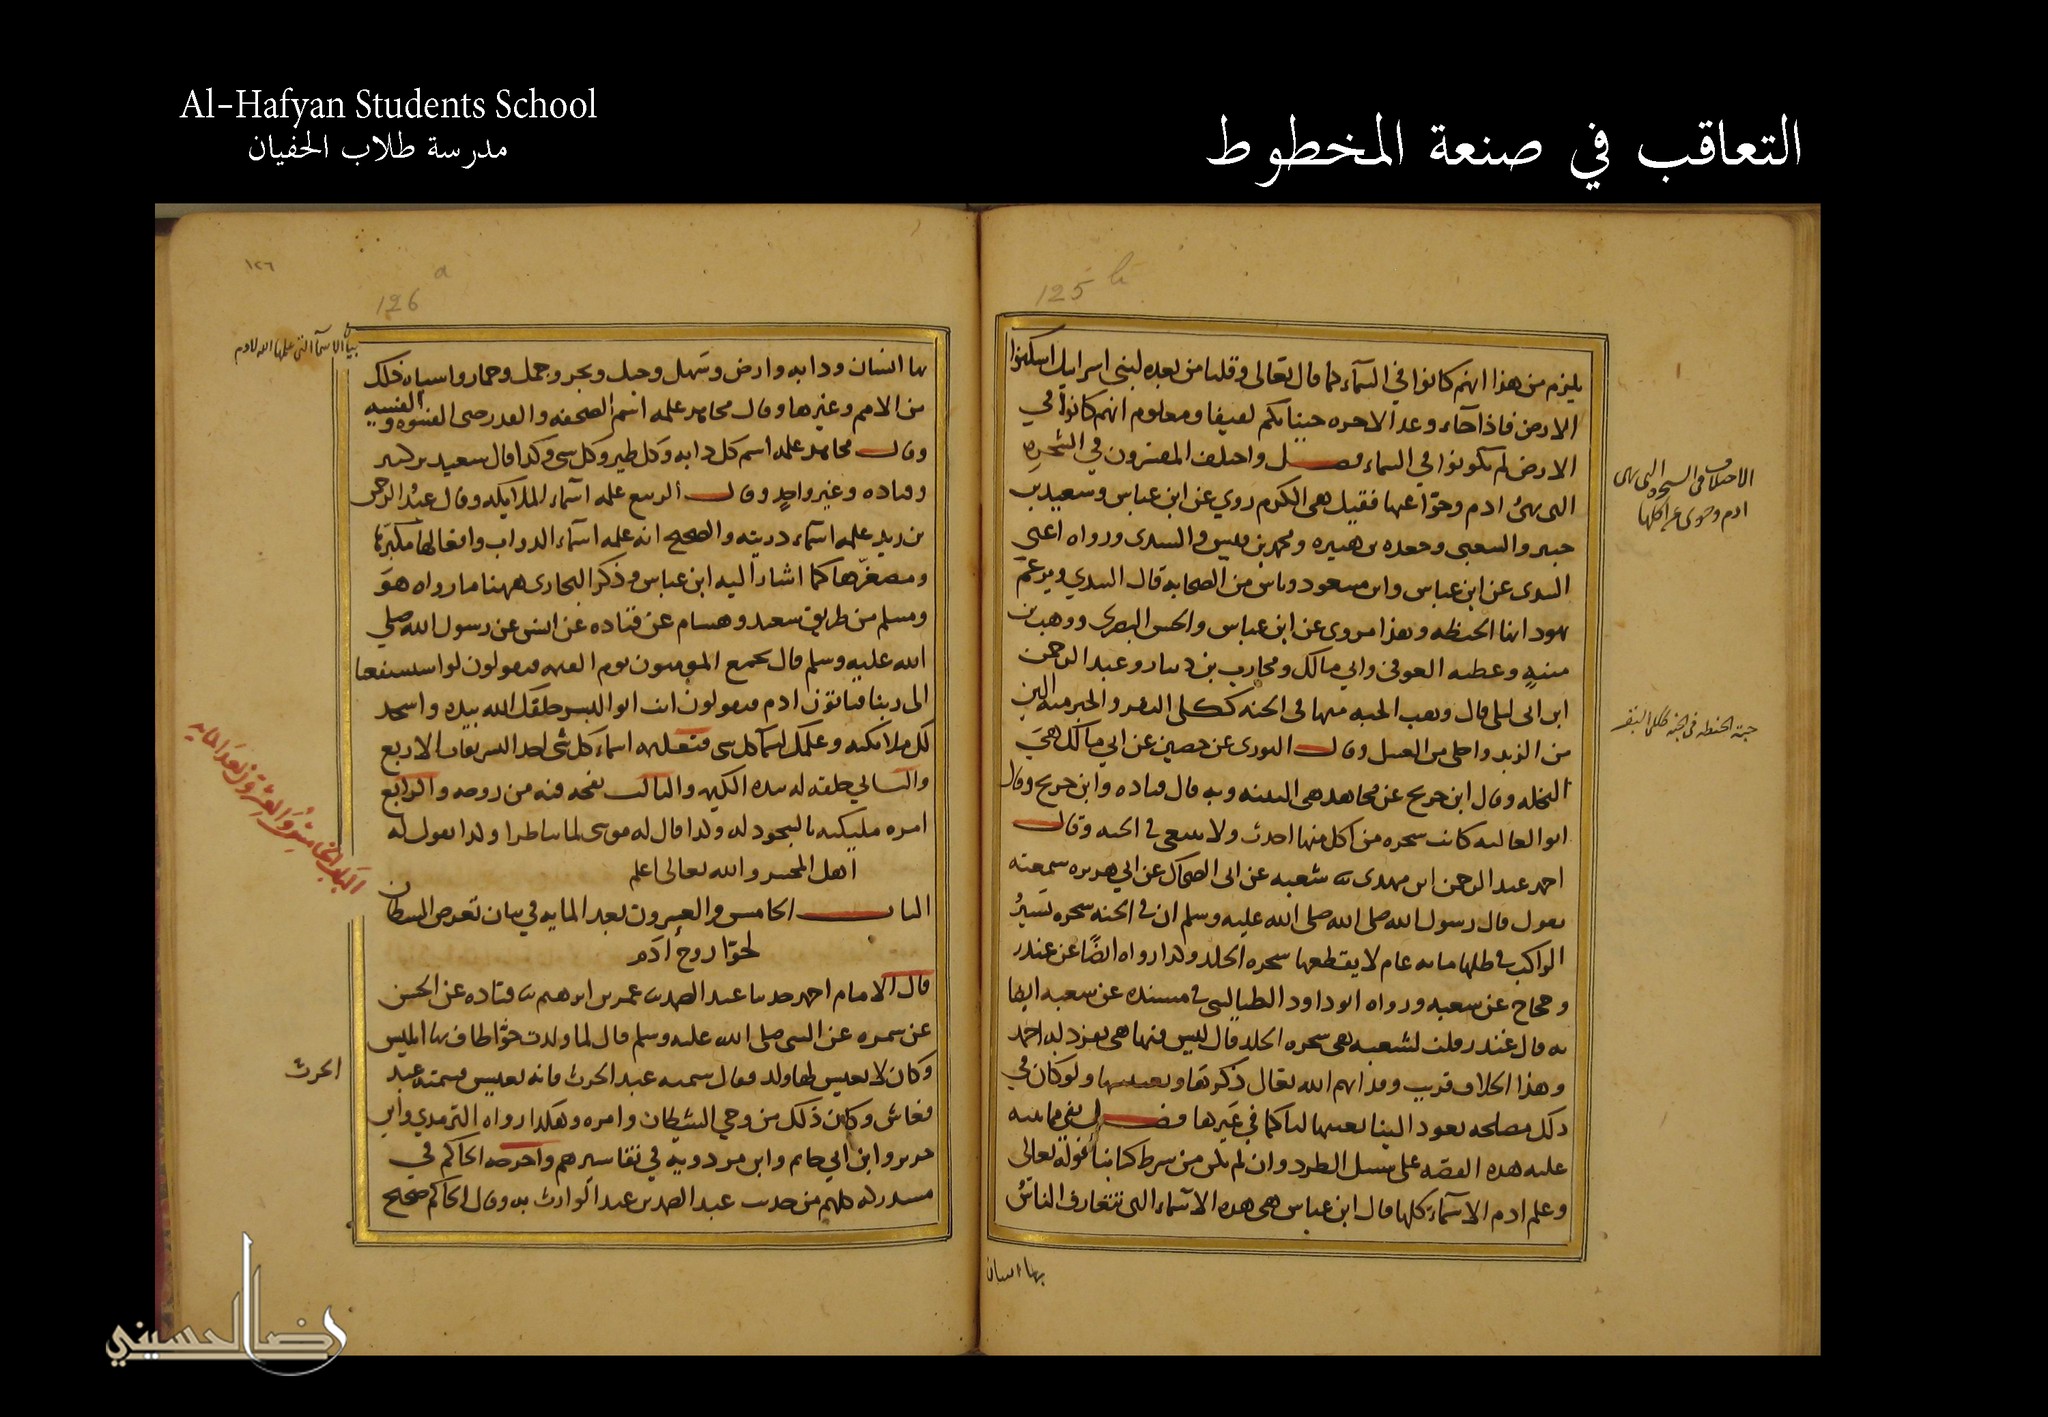 Al-Hafyan Students School
مدرسة طلاب الحفيان
التعاقب في صنعة المخطوط
125 b
يلزم من هذا انهم كانوا في السماء كما قال تعالى وقلنا من بعده لبني اسرايل اسكنوا
الارض فاذا جاء وعد الاخره جينا بكم لفيفا ومعلوم انهم كانوا في
الارض لم يكونوا في السماء فصل واختلف المفسرون في الشجره
التي نهى ادم وحوا عنها فقيل هي الكرم روي عن ابن عباس وسعيد بن
جبير والشعبي وجعده بن هبيره ومحمد بن قيس والسدي ورواه اعني
السدى عن ابن عباس وابن مسعود وناس من الصحابه قال السدي ويزعم
يهود انها الحنطه وهذا مروى عن ابن عباس والحسن البصرى ووهب بن
منبه وعطيه العوفى وابي مالك ومحارب بن دينار وعبد الرحمن
ابن ابى ليلى قال وهب الحبه منها في الجنه ككلى البقر والحبه منه الين
من الزبد واحلى من العسل وقال الثورى عن حصين عن ابي مالك هي
النخله وقال ابن جريج عن مجاهد هي التينه وبه قال قتاده وابن جريج وقال
ابو العاليه كانت شجره من اكل منها احدث ولا ينبغي في الجنه وقال
احمد عبد الرحمن ابن مهدى نا شعبه عن ابى الضحاك عن ابي هريره سمعته
يقول قال رسول الله صلى الله عليه وسلم ان في الجنه شجره يسير
الراكب في ظلها مايه عام لا يقطعها شجره الخلد وكذا رواه ايضا عن غندر
وحجاج عن شعبه ورواه ابو داود الطيالسى في مسنده عن شعبه ايضا
به قال غندر قلت لشعبه هي شجره الخلد قال ليس فيها هى تفرد به احمد
وهذا الخلاف قريب وقد ابهم الله تعالى ذكرها وتعيينها ولو كان في
ذلك مصلحه تعود الينا لعينها لنا كما في غيرها فصل
عليه هذه القصه على سبيل الطرد وان لم يكن من شرط كتابنا قوله تعالى
وعلم ادم الاسماء كلها قال ابن عباس هي هذه الاسماء التى تتعارف الناس
بها انسان
الاختلاف في الشجره التى نهى
ادم وحوى عن اكلها
حبة الحنطه في الجنه ككلى البقر
١٢٦
126 a
بيان الاسما التي علمها الله لادم
بها انسان ودابه وارض وسهل وجبل وبحر وجمل وحمار واشباه ذلك
من الامم وغيرها وقال مجاهد علمه اسم الصحفه والقدر حتى الفسوه والفسيه
وقال مجاهد علمه اسم كل دابه وكل طير وكل شي وكذا قال سعيد بن جبير
وقتاده وغير واحد وقال الربيع علمه اسماء الملايكه وقال عبد الرحمن
بن زيد علمه اسماء ذريته والصحيح انه علمه اسماء الدواب وافعالها مكبرها
ومصغرها كما اشار اليه ابن عباس وذكر البخارى ههنا ما رواه هو
ومسلم من طريق سعيد وهشام عن قتاده عن انس عن رسول الله صلى
الله عليه وسلم قال يجمع المومنون يوم القيمه فيقولون لو استشفعنا
الى ربنا فياتون ادم فيقولون انت ابو البشر خلقك الله بيده واسجد
لك ملايكته وعلمك اسما كل شى فتعليمه اسماء كل شى احد التشريفات الاربع
والثاني خلقه له بيده الكريمه والثالث نفخه فيه من روحه والرابع
امره مليكته بالسجود له ولذا قال له موسى لما تناظرا ولذا يقول له
اهل المحشر والله تعالى اعلم
الباب الخامس والعشرون بعد المايه في بيان تعرض الشيطان
لحوا زوج ادم
قال الامام احمد حدثنا عبد الصمد نا عمر بن ابرهيم نا قتاده عن الحسن
عن سمره عن النبى صلى الله عليه وسلم قال لما ولدت حوا طاف بها ابليس
وكان لا يعيش لها ولد فقال سميه عبد الحرث فانه يعيش فسمته عبد
فعاش وكان ذلك من وحي الشيطان وامره وهكذا رواه الترمذي وابن
جرير وابن ابي حاتم وابن مردويه في تفاسيرهم واخرجه الحاكم في
مستدركه كلهم من حديث عبد الصمد بن عبد الوارث به وقال الحاكم صحيح
الباب الخامس والعشرون بعد المايه
الحرث
رضا الحسيني